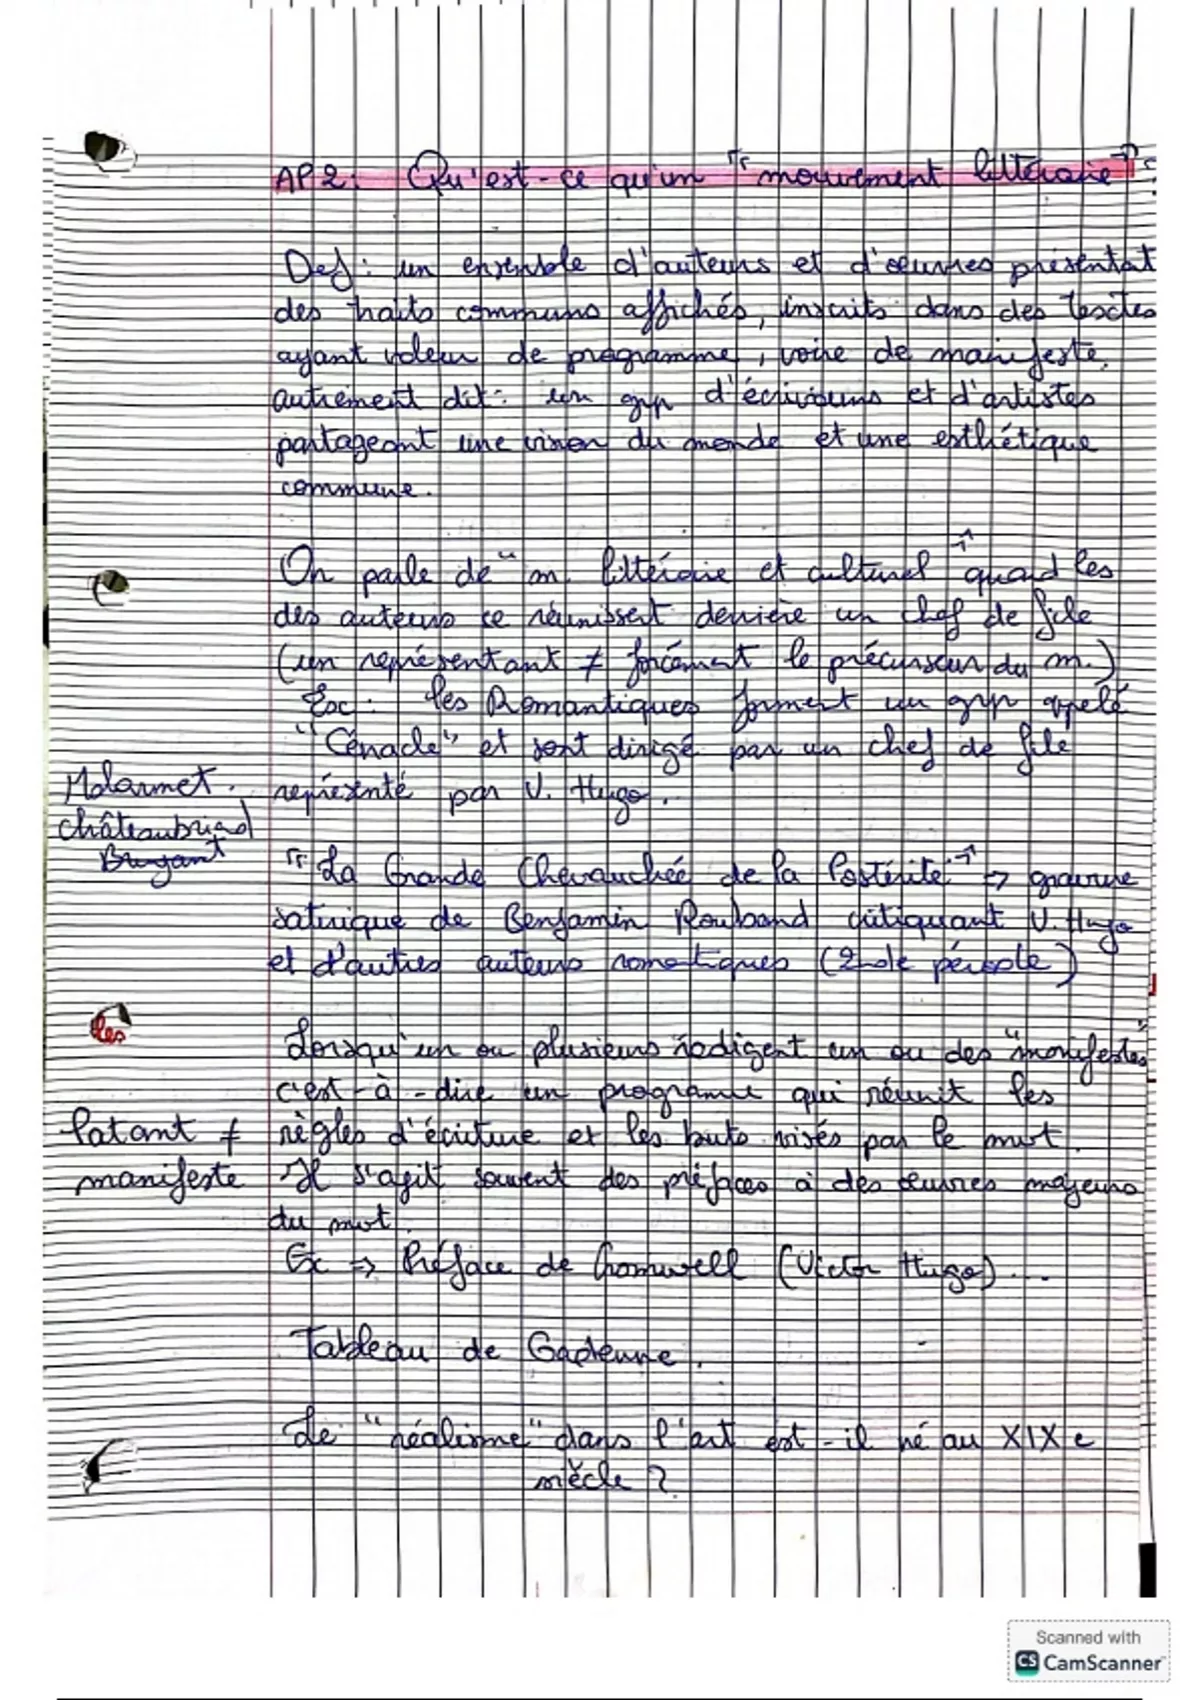 AP 2 : Qu'est-ce qu'un "mouvement littéraire" ?
Def : un ensemble d'auteurs et d'oeuvres présentat
des traits communs affichés, inscrits dans des textes
ayant valeur de programme, voire de manifeste.
autrement dit : un grp d'écrivains et d'artistes
partageant une vision du monde et une esthétique
commune.
On parle de "m. littéraire et culturel" quand les
des auteurs se réunissent derrière un chef de file
(un représentant ≠ forcément le précurseur du m.)
Ex : les Romantiques forment un grp appelé
"Cénacle" et sont dirigé par un chef de file
représenté par V. Hugo.
Malarmet.
Châteaubriad
Bruyant
"La Grande Chevauchée de la Postérité" → gravure
satirique de Benjamin Roubaud critiquant V. Hugo
et d'autres auteurs romatiques (2nde période)
les
Lorsqu'un ou plusieurs rédigent un ou des "manifestes"
c'est-à-dire un programme qui réunit les
règles d'écriture et les buts visés par le mvt.
Il s'agit souvent des préfaces à des œuvres majeurs
du mvt.
latant ≠
manifeste
Ex → Préface de Cromwell (Victor Hugo)...
Tableau de Gadenne.
Le "réalisme" dans l'art est-il né au XIXe
siècle ?
Scanned with
CS CamScanner